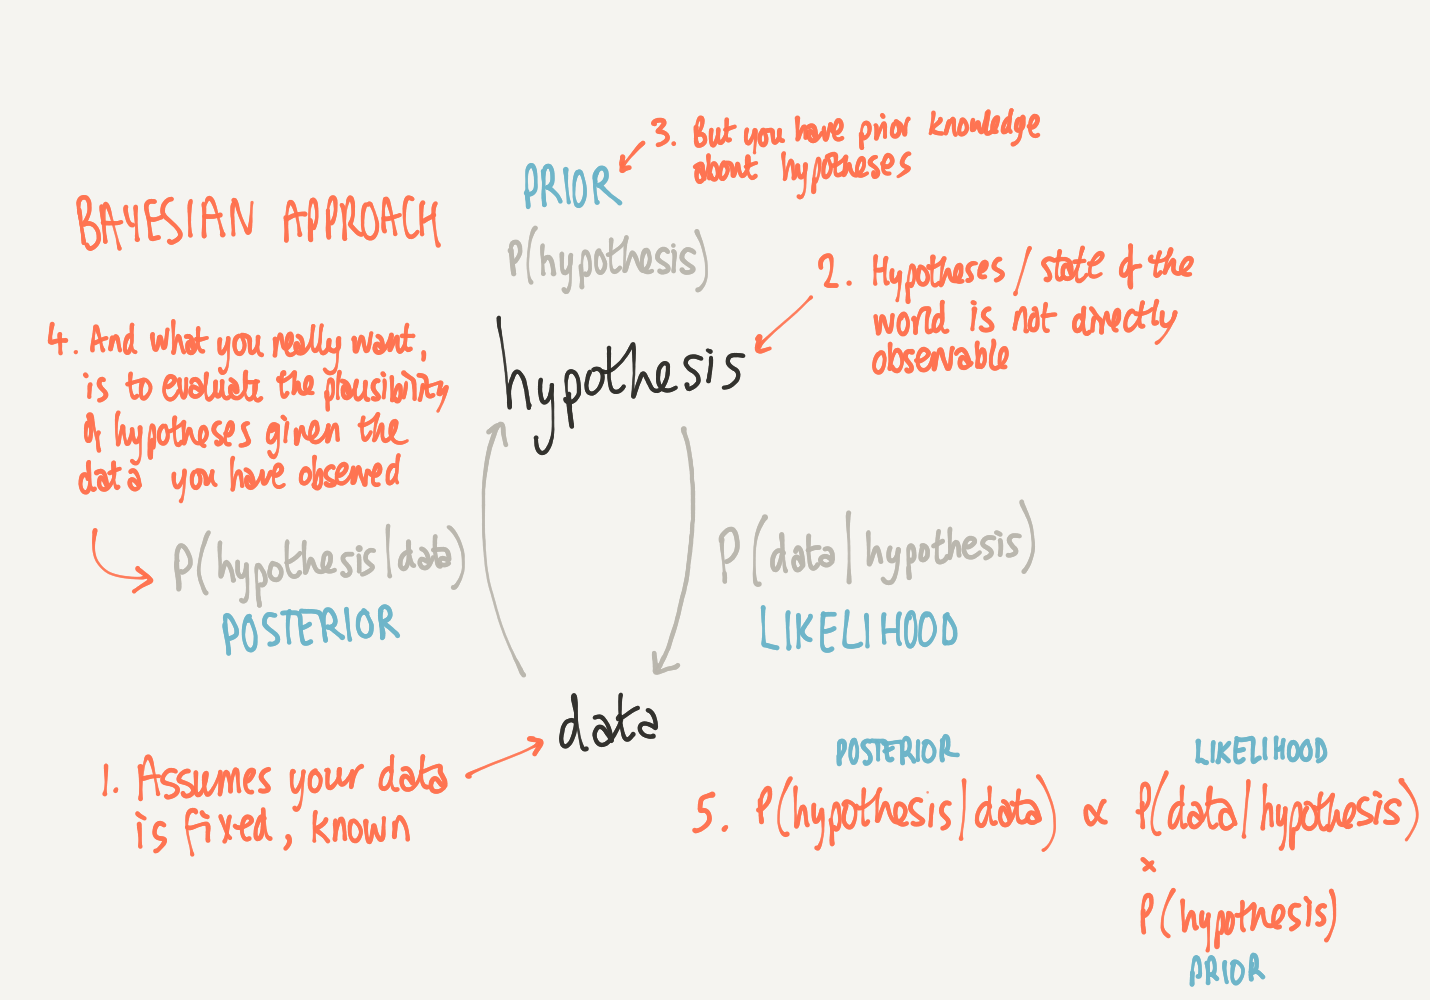 BAYESIAN APPROACH
3. But you have prior knowledge
about hypotheses
PRIOR
P(hypothesis)
2. Hypotheses / state of the
world is not directly
observable
hypothesis
4. And what you really want,
is to evaluate the plausibility
of hypotheses given the
data you have observed
P(hypothesis|data)
POSTERIOR
P(data|hypothesis)
LIKELIHOOD
data
1. Assumes your data
is fixed, known
POSTERIOR LIKELIHOOD
5. P(hypothesis|data) ∝ P(data|hypothesis)
×
P(hypothesis)
PRIOR